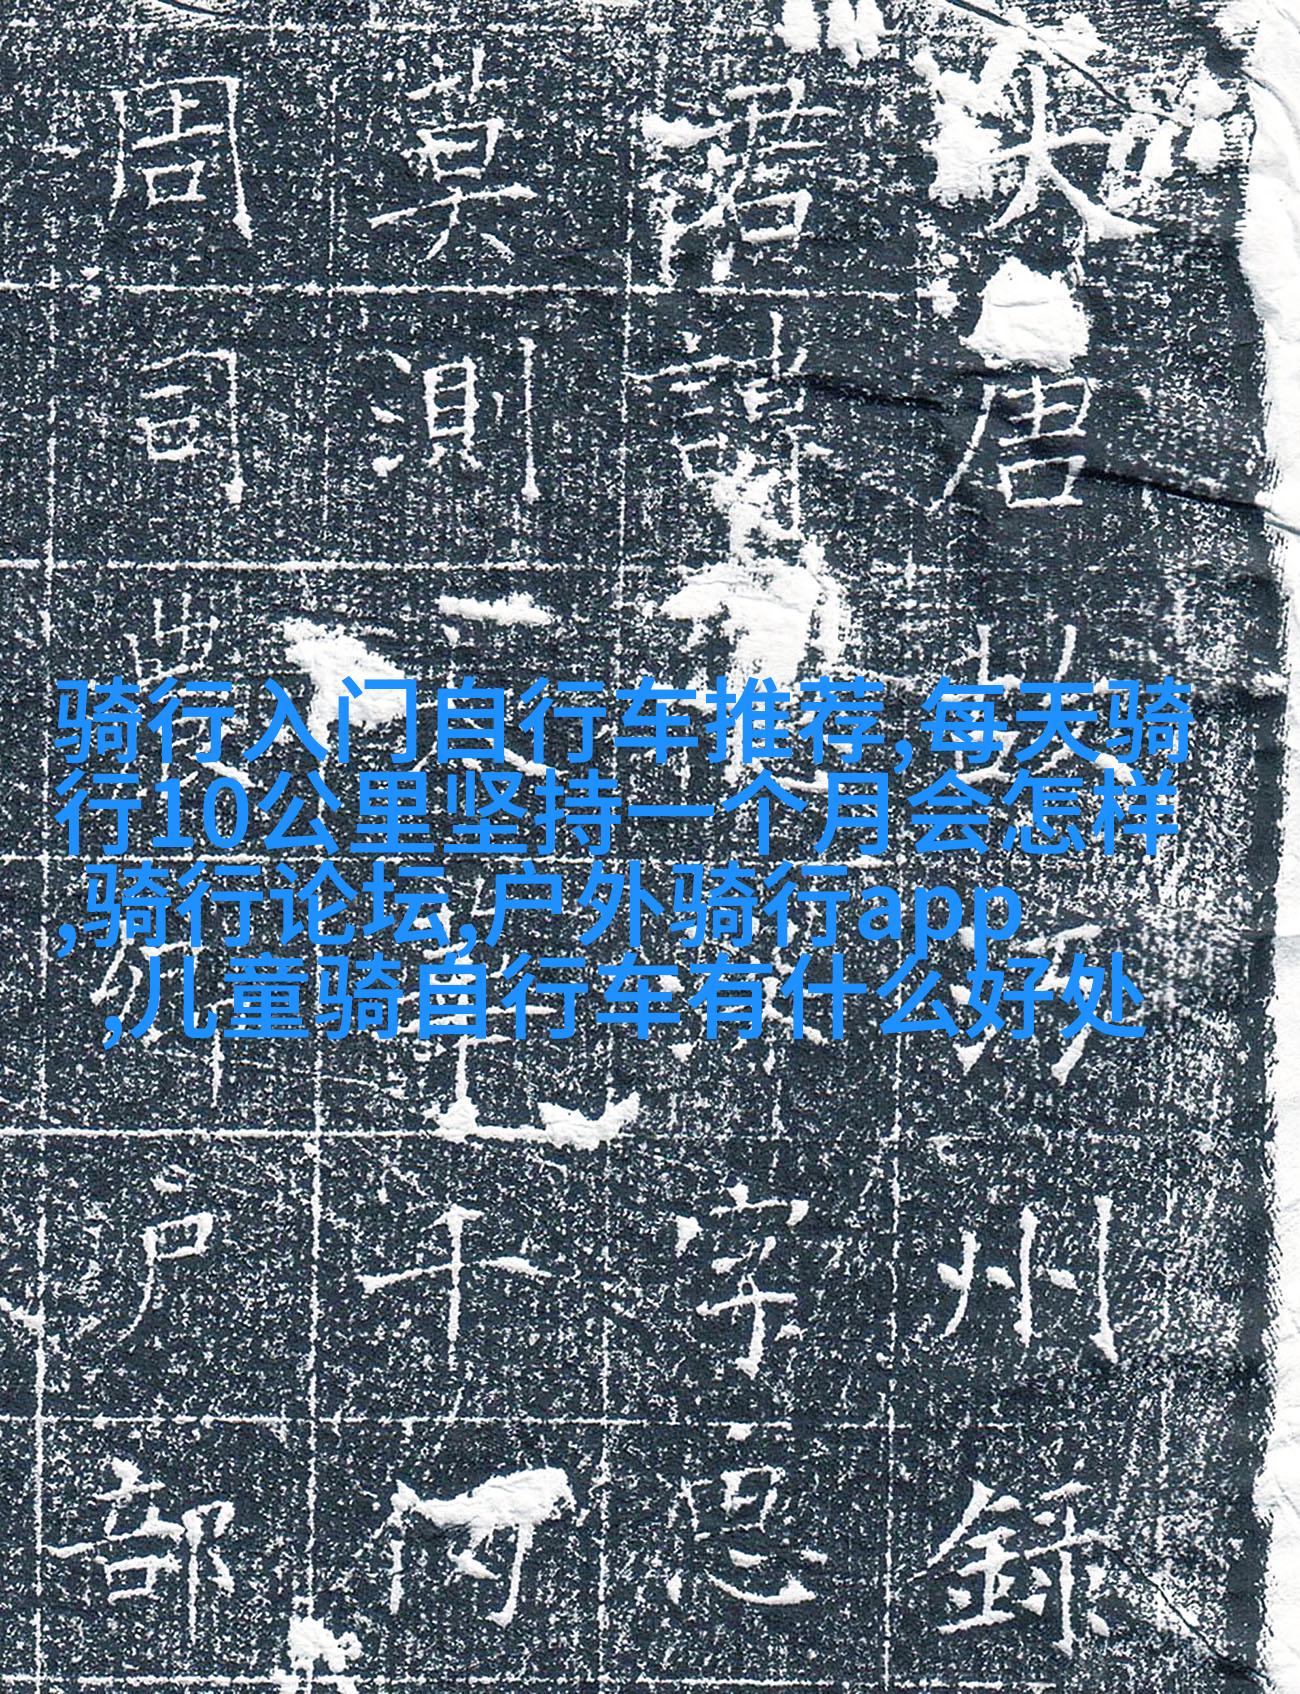 大唐故州錄
君諱字思
莫測
周司農卿戶部
骑行入门自行车推荐,每天骑
行10公里坚持一个月会怎样
,骑行论坛,户外骑行app
,儿童骑自行车有什么好处